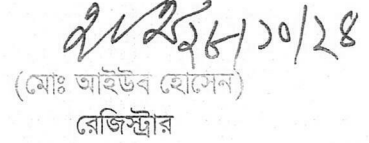 ২৮/১০/২৪
(মোঃ আইউব হোসেন)
রেজিস্ট্রার